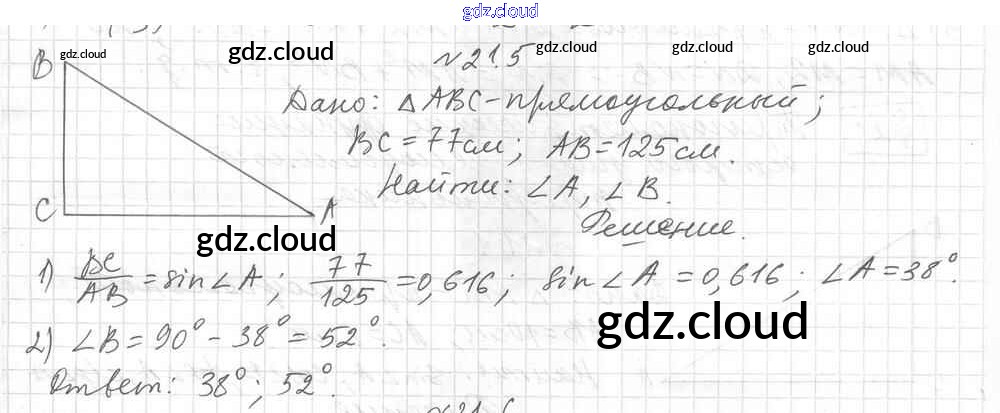 gdz.cloud
B gdz.cloud gdz.cloud №21.5 gdz.cloud gdz.cloud
Дано: △ABC-прямоугольный;
BC = 77см; AB=125см.
Найти: ∠A, ∠B.
C A
Решение.
gdz.cloud
1) BC/AB = sin∠A; 77/125 = 0,616; sin∠A = 0,616; ∠A=38°.
gdz.cloud
2) ∠B= 90° - 38° = 52°.
Ответ: 38°; 52°.